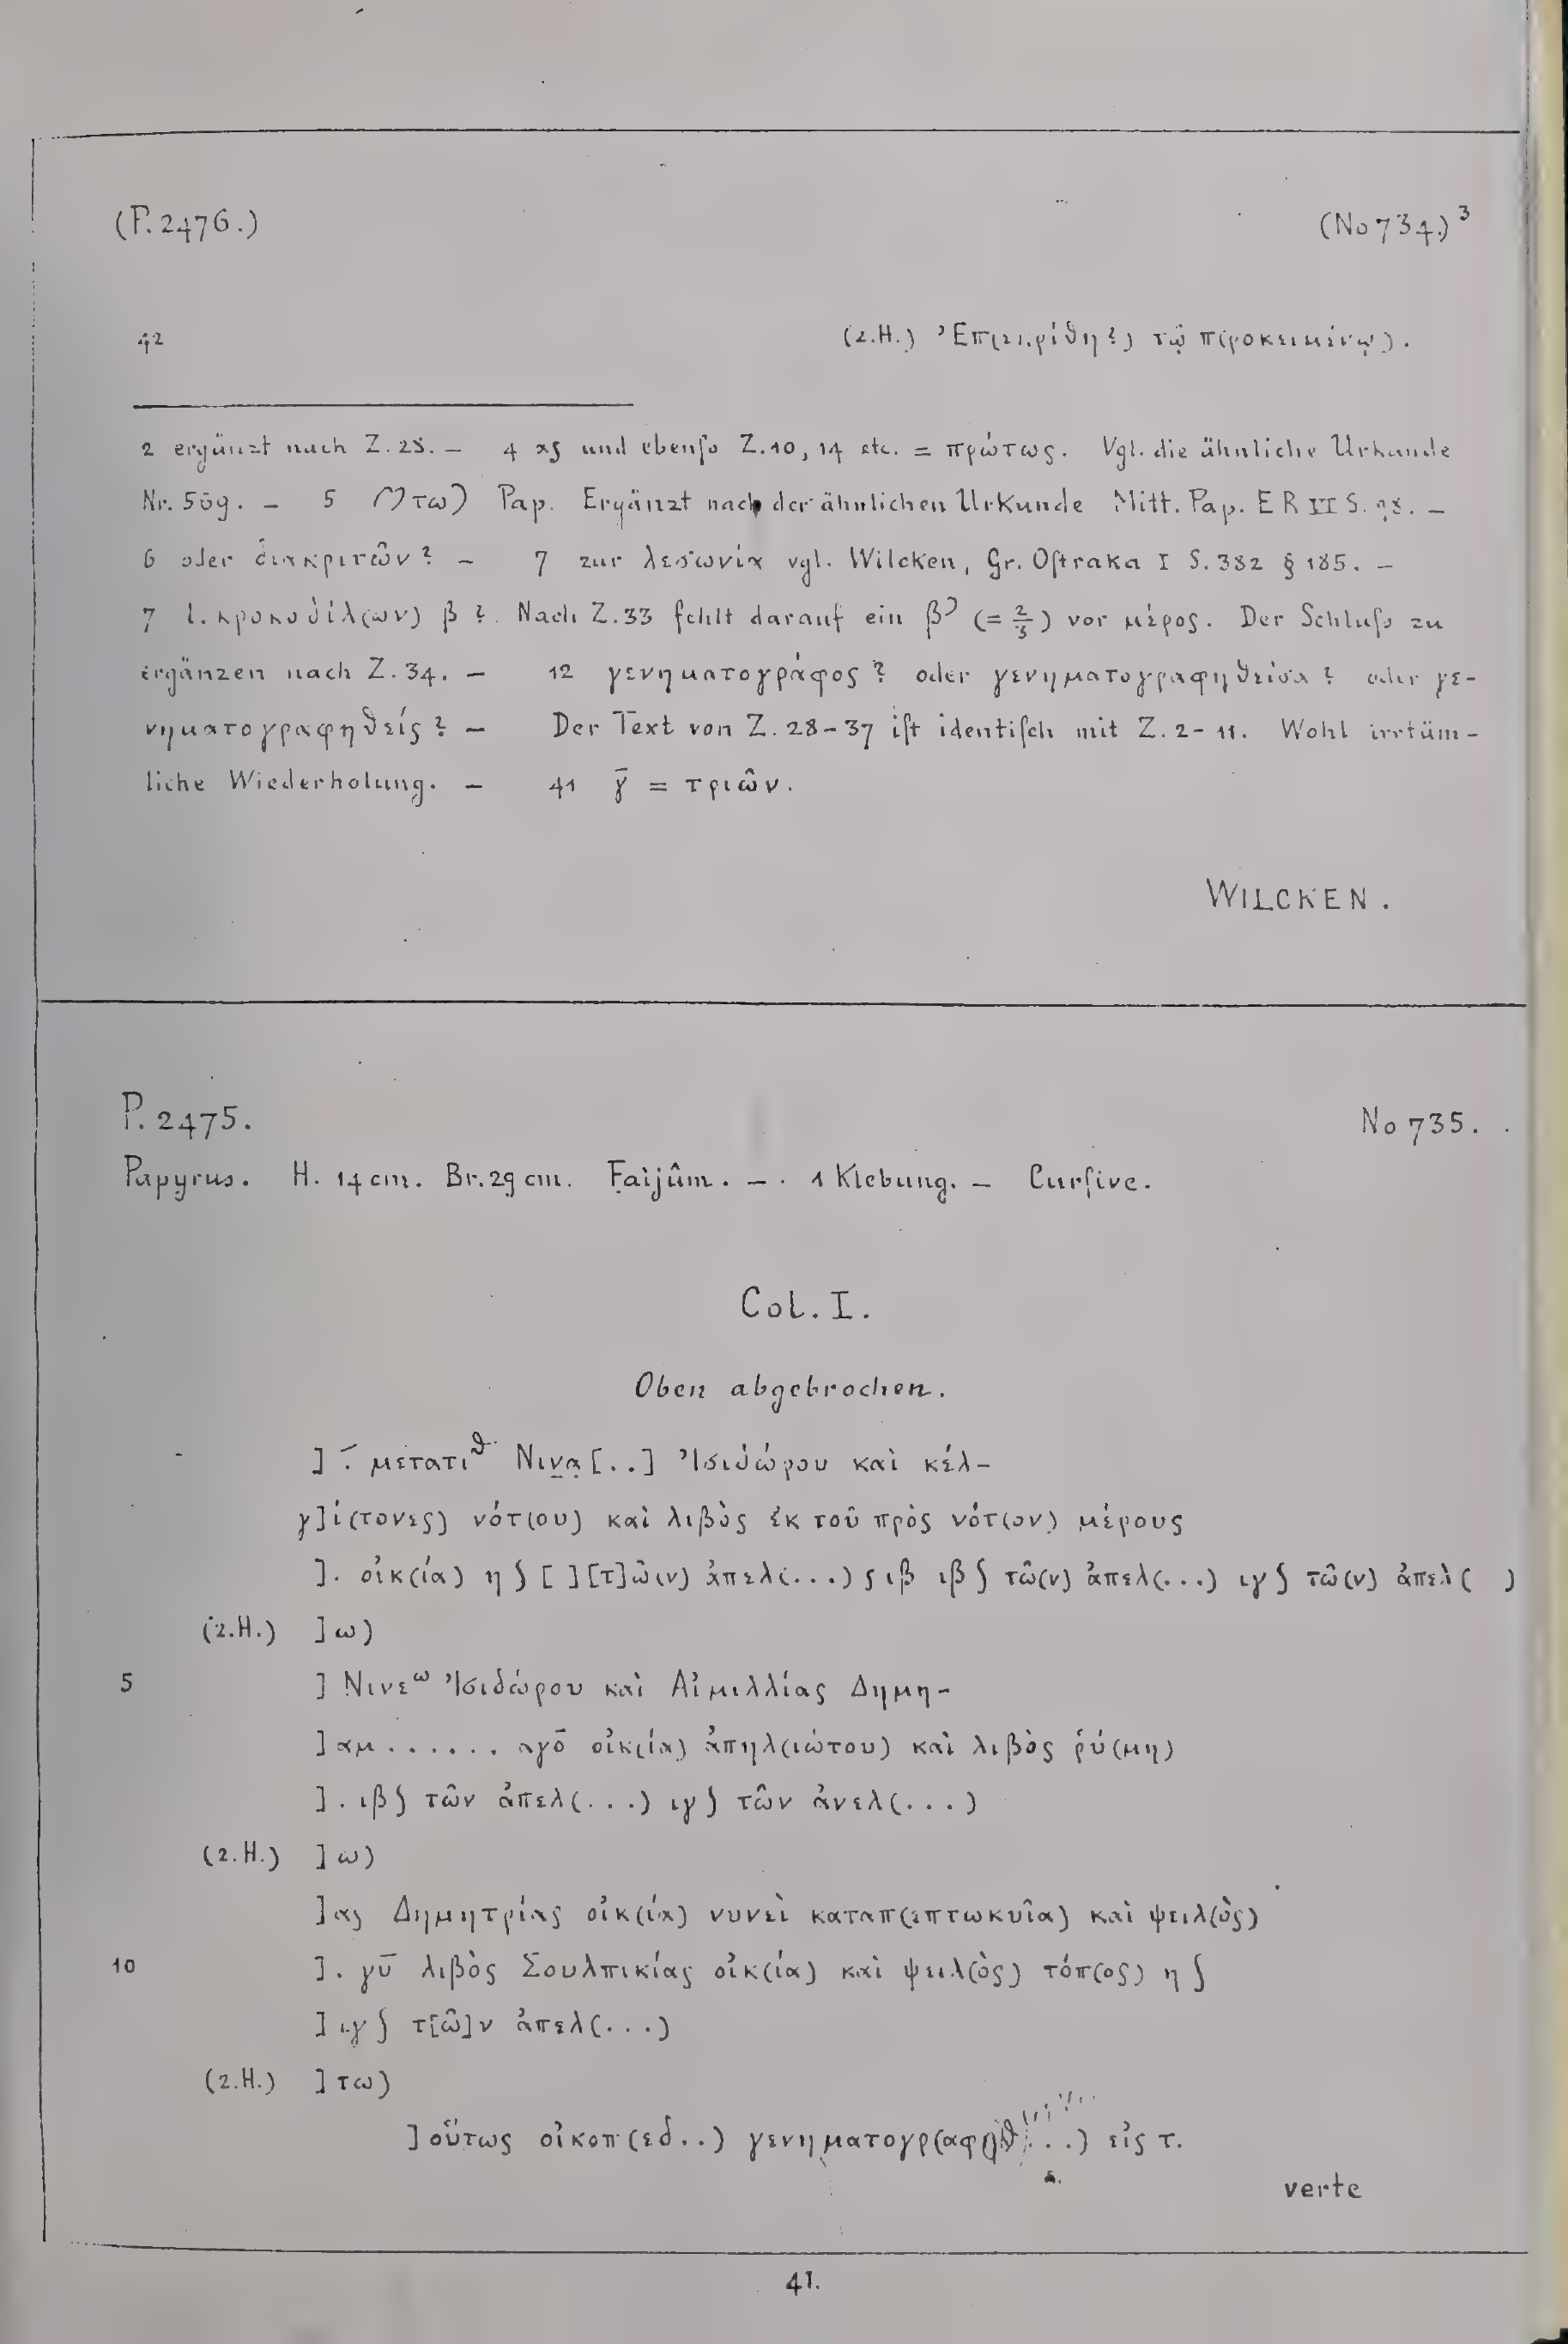 (P. 2476.) (No 734.)³
42 (2.H.) Ἐπ(εκρίθη?) τῷ π(ροκειμένῳ).
2 ergänzt nach Z. 28. – 4 ας und ebenſo Z. 10, 14 etc. = πρώτως. Vgl. die ähnliche Urkunde
Nr. 509. – 5 τω) Pap. Ergänzt nach der ähnlichen Urkunde Mitt. Pap. E R II S.
6 oder διακριτῶν? – 7 zur λεσωνία vgl. Wilcken, Gr. Oſtraka I S. 382 § 185. –
7 l. κροκοδίλ(ων) β?. Nach Z. 33 fehlt darauf ein β⁾ (= 2/3) vor μέρος. Der Schluſs zu
ergänzen nach Z. 34. – 12 γενηματογράφος? oder γενηματογραφηθεῖσα? oder γε-
νηματογραφηθείς? – Der Text von Z. 28-37 iſt identiſch mit Z. 2-11. Wohl irrtüm-
liche Wiederholung. – 41 γ̄ = τριῶν.
WILCKEN.
P. 2475. No 735.
Papyrus. H. 14 cm. Br. 29 cm. Faijûm. – 1 Klebung. – Curſive.
Col. I.
Oben abgebrochen.
] . μετατιᶿ Νινα[..] Ἰσιδώρου καὶ κέλ-
γ]ί(τονες) νότ(ου) καὶ λιβὸς ἐκ τοῦ πρὸς νότ(ον) μέρους
]. οἰκ(ία) η ʃ [ ][τ]ῶ(ν) ἀπελ(...) ς ιβ ιβ ʃ τῶ(ν) ἀπελ(...) ιγ ʃ τῶ(ν) ἀπελ( )
(2.H.) ]ω)
5 ] Νινεω Ἰσιδώρου καὶ Αἰμιλλίας Δημη-
]αμ ...... αγο̄ οἰκ(ία) ἀπηλ(ιώτου) καὶ λιβὸς ῥύ(μη)
]. ιβ ʃ τῶν ἀπελ(...) ιγ ʃ τῶν ἀνελ(...)
(2.H.) ]ω)
]ας Δημητρίας οἰκ(ία) νυνεὶ καταπ(επτωκυῖα) καὶ ψειλ(ὸς)
10 ]. γῡ λιβὸς Σουλπικίας οἰκ(ία) καὶ ψειλ(ὸς) τόπ(ος) η ʃ
] ιγ ʃ τ[ῶ]ν ἀπελ(...)
(2.H.) ]τω)
]οὕτως οἰκοπ(εδ..) γενηματογρ(αφηθ...) εἰς τ.
verte
41.